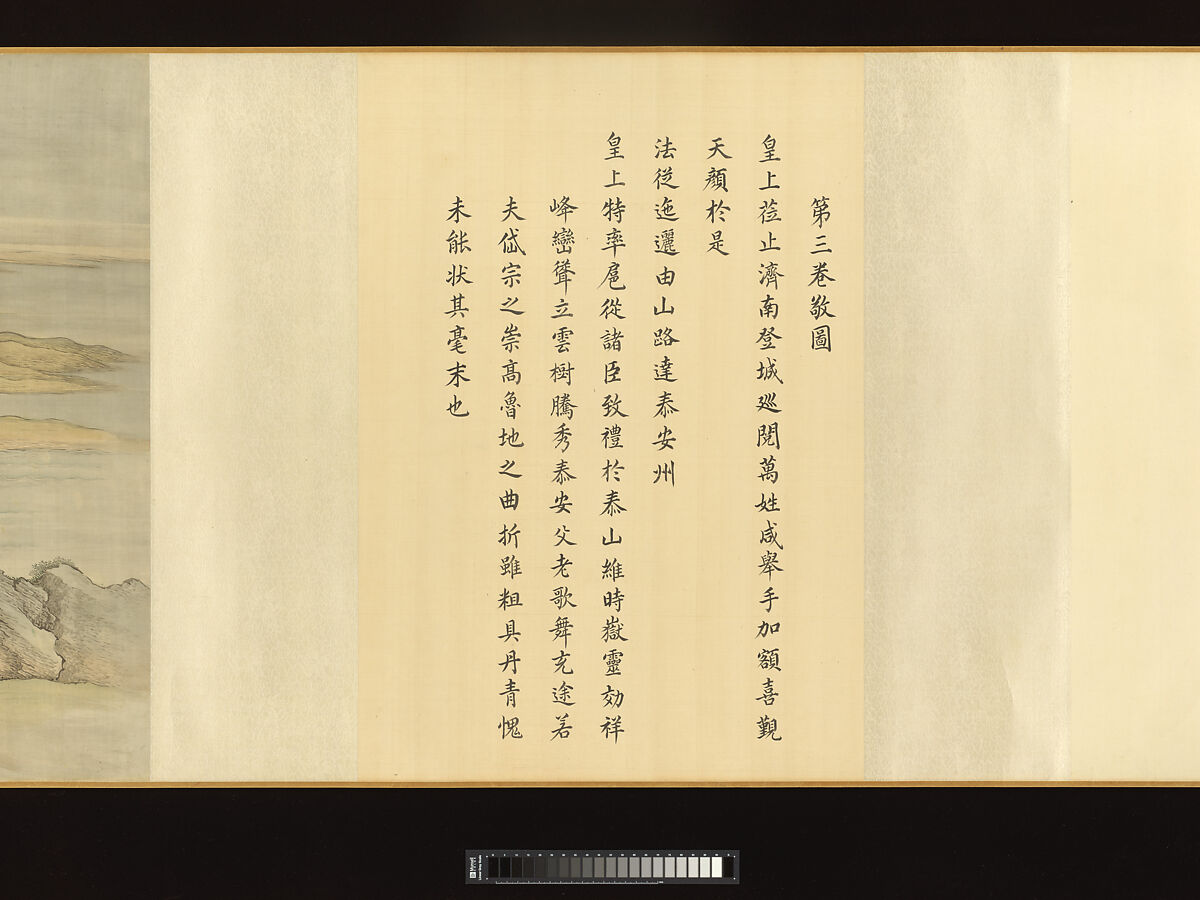 第三卷敬圖
皇上莅止濟南登城廵閱萬姓咸舉手加額喜覲
天顏於是
法従迤邐由山路達泰安州
皇上特率扈從諸臣致禮於泰山維時嶽靈効祥
峰巒聳立雲樹騰秀泰安父老歌舞充途若
夫岱宗之崇高魯地之曲折雖粗具丹青愧
未能状其毫末也